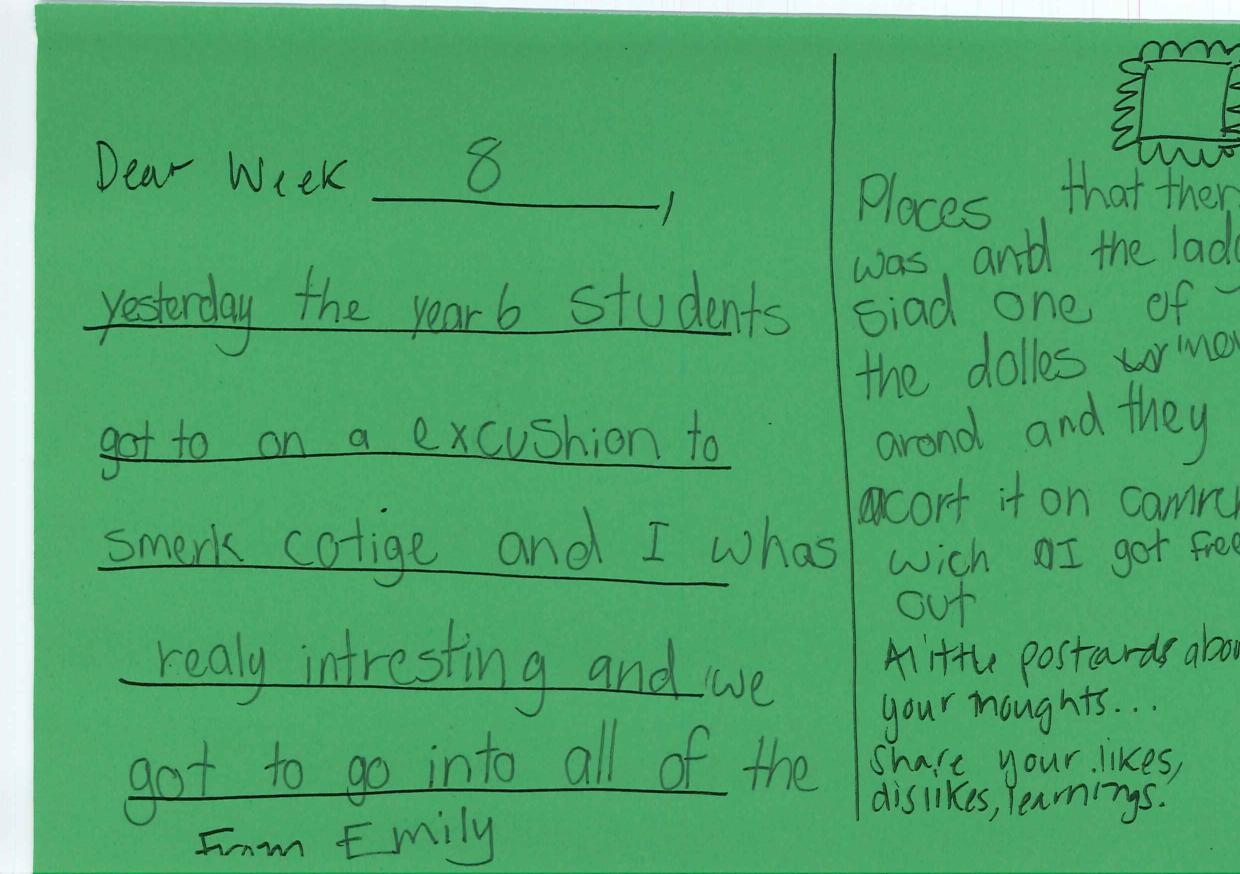 Dear Week 8,
yesterday the year 6 students
got to on a excushion to
smerk cotige and I whas
realy intresting and we
got to go into all of the
From Emily
Places that ther
was and the lad
siad one of
the dolles
arond and they
acort it on camre
wich I got free
out
A little postcards abou
your thoughts...
Share your likes,
dislikes, learnings.